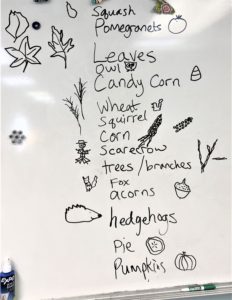 Squash
Pomegranets
Leaves
Owl
Candy Corn
Wheat
Squirrel
Corn
Scarecrow
trees/branches
Fox
acorns
hedgehogs
Pie
Pumpkins